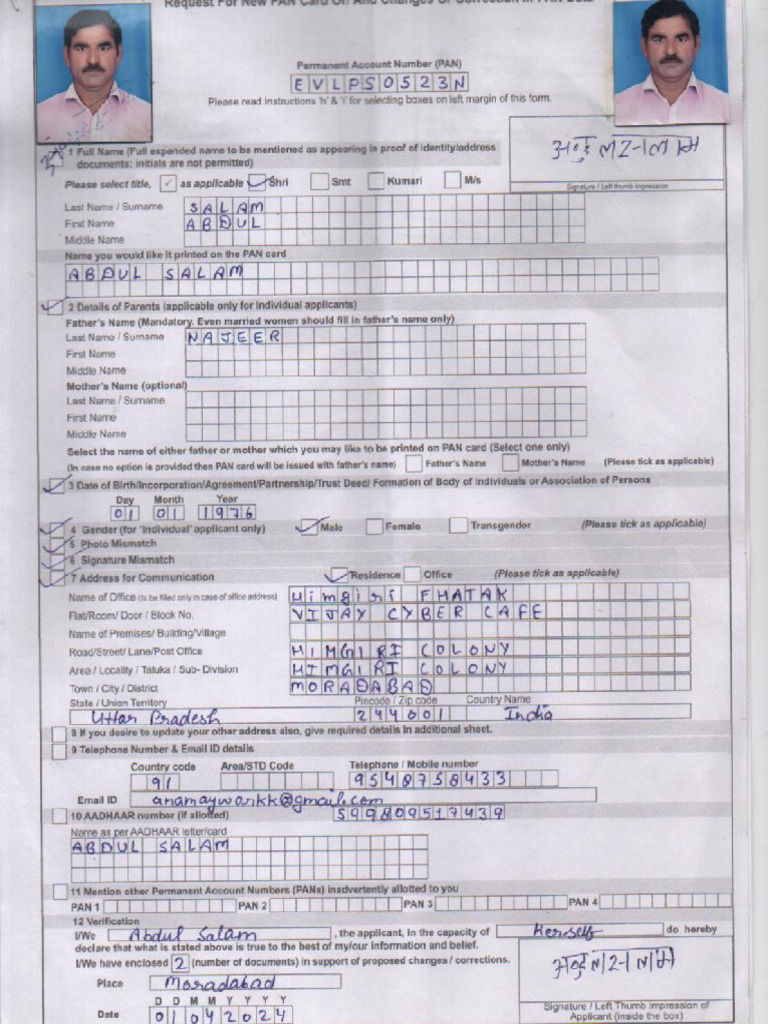 Request For New PAN Card Or/ And Changes Or Correction in PAN Data
Permanent Account Number (PAN)
EVLPS0523N
Please read instructions 'h' & 'i' for selecting boxes on left margin of this form.
1 Full Name (Full expanded name to be mentioned as appearing in proof of identity/address
documents: initials are not permitted)
Please select title, ✓ as applicable ✓ Shri Smt Kumari M/s
Signature / Left thumb impression
Last Name / Surname SALAM
First Name ABDUL
Middle Name
Name you would like it printed on the PAN card
ABDUL SALAM
2 Details of Parents (applicable only for Individual applicants)
Father's Name (Mandatory. Even married women should fill in father's name only)
Last Name / Surname NAJEER
First Name
Middle Name
Mother's Name (optional)
Last Name / Surname
First Name
Middle Name
Select the name of either father or mother which you may like to be printed on PAN card (Select one only)
(In case no option is provided then PAN card will be issued with father's name) Father's Name Mother's Name (Please tick as applicable)
3 Date of Birth/Incorporation/Agreement/Partnership/Trust Deed/ Formation of Body of Individuals or Association of Persons
Day Month Year
01 01 1976
4 Gender (for 'Individual' applicant only) ✓ Male Female Transgender (Please tick as applicable)
5 Photo Mismatch
6 Signature Mismatch
7 Address for Communication ✓ Residence Office (Please tick as applicable)
Name of Office (to be filled only in case of office address) Himgiri FHATAK
Flat/Room/ Door / Block No. VIJAY CYBER CAFE
Name of Premises/ Building/Village
Road/Street/ Lane/Post Office HIMGIRI COLONY
Area / Locality / Taluka / Sub- Division HIMGIRI COLONY
Town / City / District MORADABAD
State / Union Territory Pincode / Zip code Country Name
Uttar Pradesh 244001 India
8 If you desire to update your other address also, give required details in additional sheet.
9 Telephone Number & Email ID details
Country code Area/STD Code Telephone / Mobile number
91 9548758433
Email ID anamayworkk@gmail.com
10 AADHAAR number (if allotted) 599809517439
Name as per AADHAAR letter/card
ABDUL SALAM
11 Mention other Permanent Account Numbers (PANs) inadvertently allotted to you
PAN 1 PAN 2 PAN 3 PAN 4
12 Verification
I/We Abdul Salam , the applicant, in the capacity of Herself do hereby
declare that what is stated above is true to the best of my/our information and belief.
I/We have enclosed 2 (number of documents) in support of proposed changes / corrections.
Place Moradabad
D D M M Y Y Y Y
Date 01042024
Signature / Left Thumb Impression of
Applicant (inside the box)